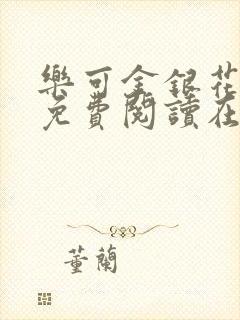 樂可金銀花
免費閱讀在
董蘭